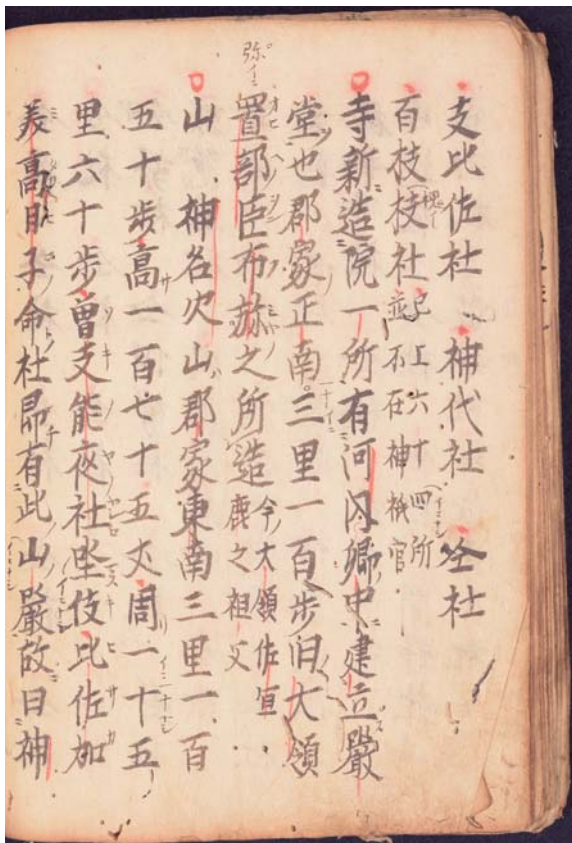 支比佐社　神代社　仝社
百枝枝社 已上六十四所 並不在神祇官
寺新造院一所有河内郷中建立嚴
堂也郡家正南三里一百歩旧大領
置部臣布弥之所造 今大領佐宣 鹿之祖父
山　神名火山郡家東南三里一百
五十歩高一百七十五丈周一十五
里六十歩曽支能夜社坐伎比佐加
美高日子命社即有此山嚴故曰神